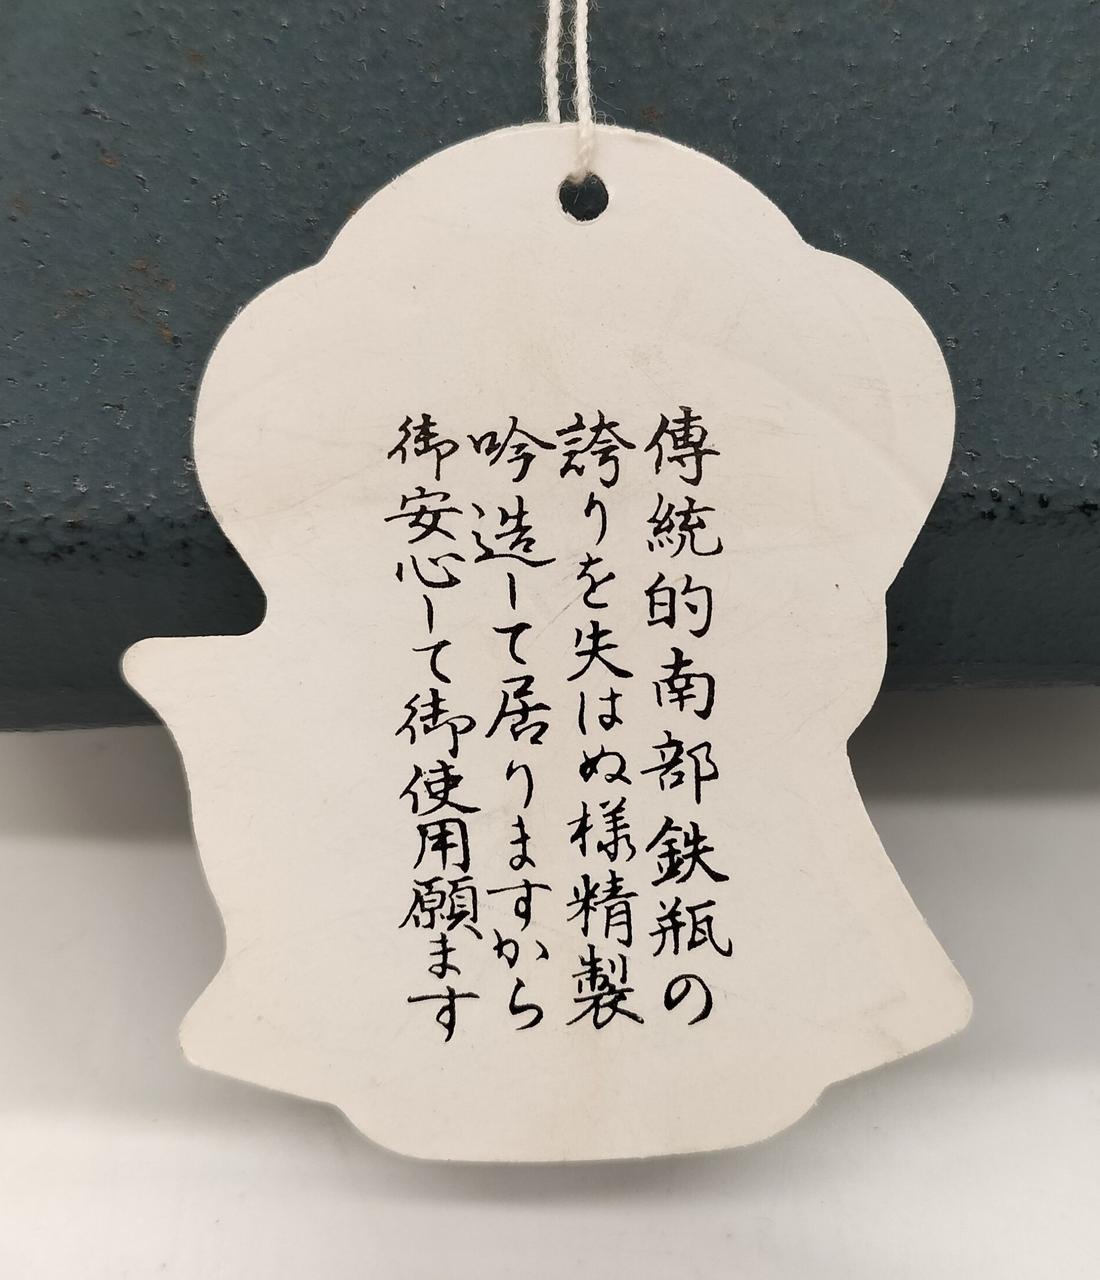 傳統的南部鉄瓶の
誇りを失はぬ様精製
吟造して居りますから
御安心して御使用願ます